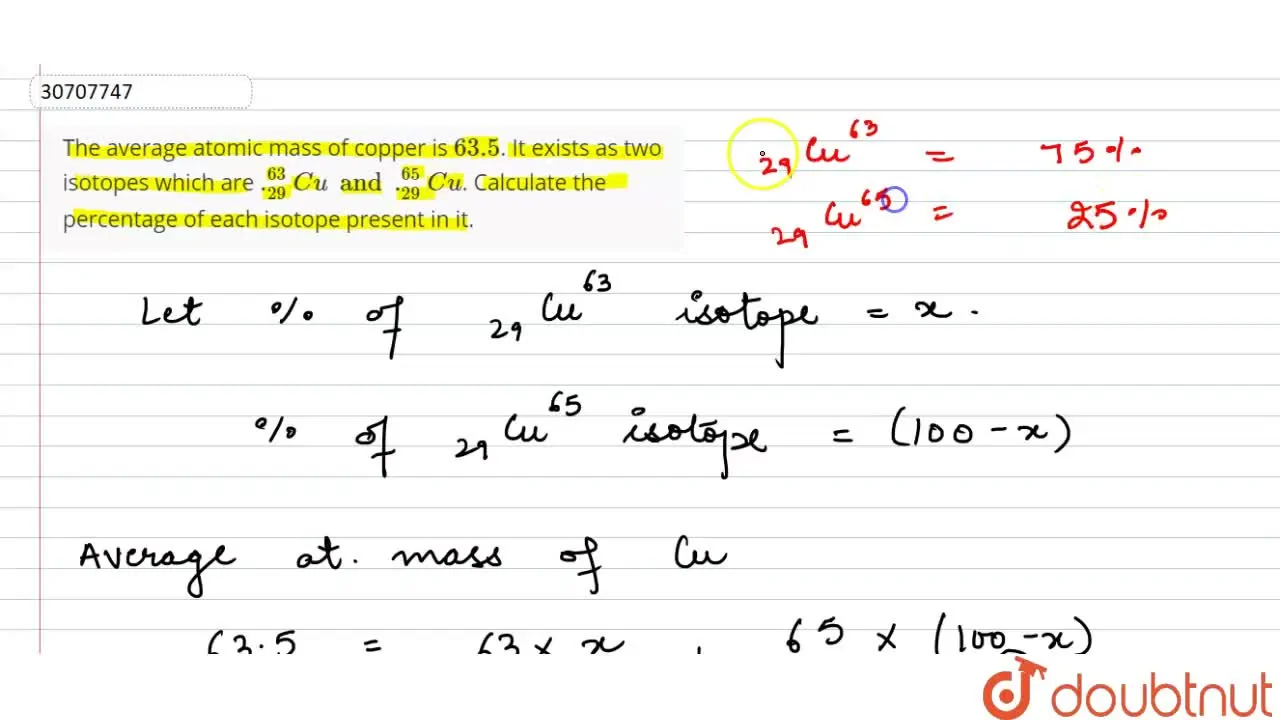 30707747
The average atomic mass of copper is 63.5. It exists as two
isotopes which are .⁶³₂₉Cu and .⁶⁵₂₉Cu. Calculate the
percentage of each isotope present in it.
₂₉Cu⁶³ = 75%
₂₉Cu⁶⁵ = 25%
Let % of ₂₉Cu⁶³ isotope = x.
% of ₂₉Cu⁶⁵ isotope = (100-x)
Average at. mass of Cu
63.5 = 63 × x 65 × (100-x)
doubtnut